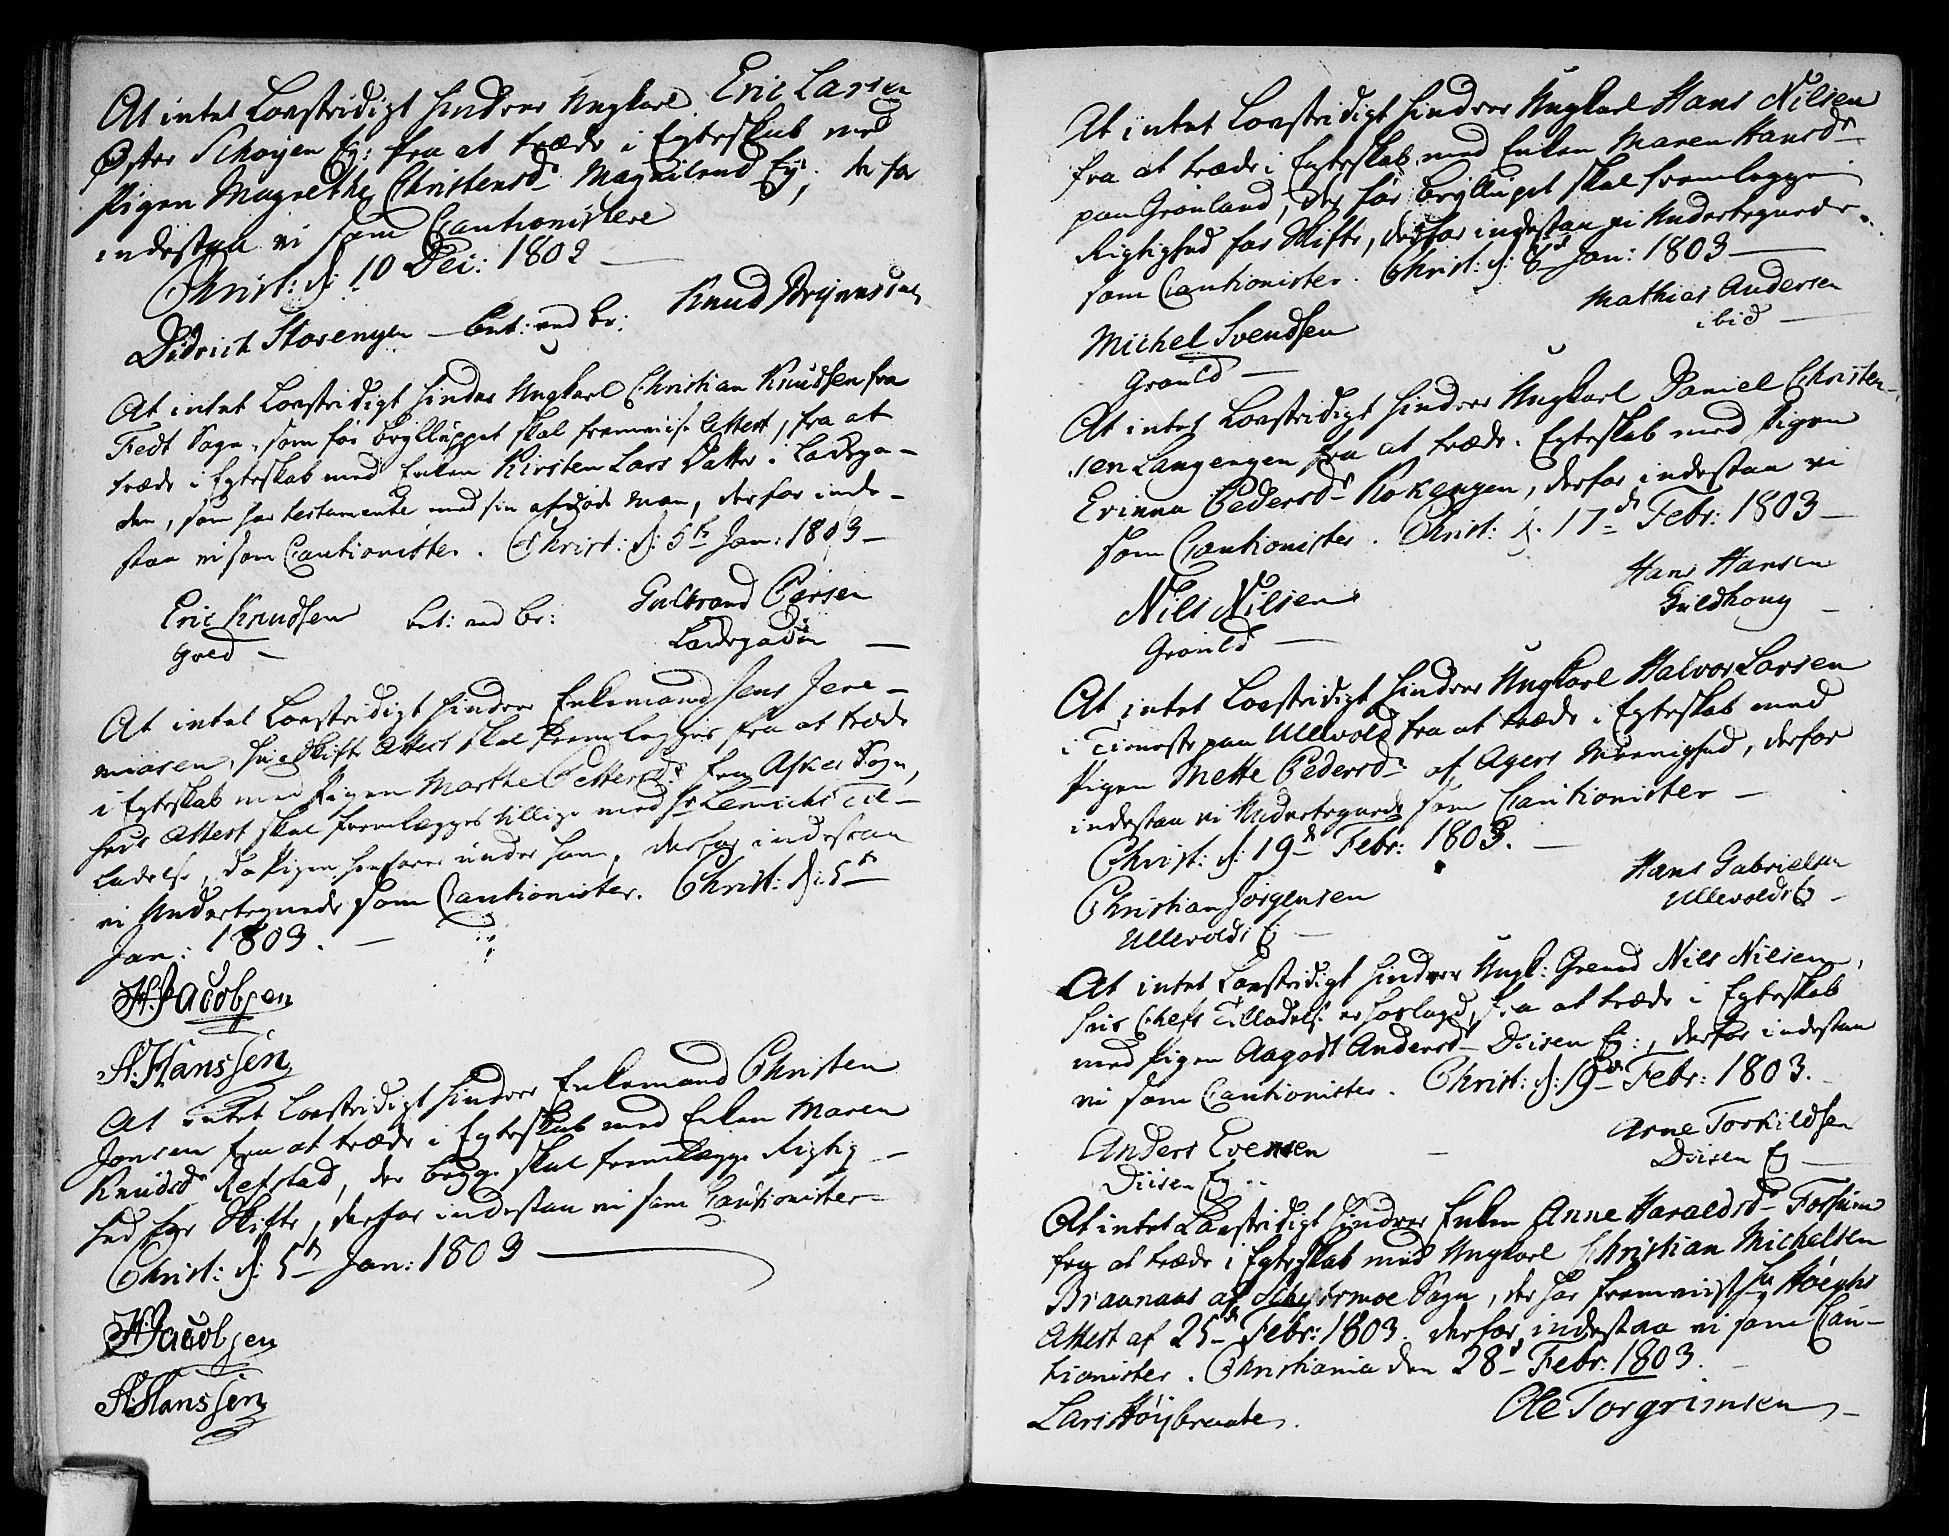 At intet Lovstridigt hindrer Ungkarl Eric Larsen
Øster Schøyen Ej: fra at træde i Egteskab med
Pigen Magrethe Christensd: Magnilrud Ej:, derfor
indestaa vi som Cautionistere
Christ: d: 10 Dec: 1802 —
Didrich Storengen — bet: ved br: Knud Brÿnnildsen
At intet Lovstridigt hinder Ungkarl Christian Knudsen fra
Fedt Sogn, som før Brylluppet skal fremviise Attest, fra at
træde i Egteskab med Enken Kirsten Lars Datter i Ladega-
den, som har testamente med sin afdøde Man, derfor inde-
staa vi som Cautionister. Christ: d: 5te Jan: 1803 —
Eric Knudsen bet: ved br: Gulbrand Larsen
Grld — Ladegaden —
At intet Lovstridigt hindrer Enkemand Jens Jere-
miasen, hvis Skifte Attest skal fremlægges, fra at træde
i Egteskab med Pigen Marthe Pettersdr fra Asker Sogn,
hvis Attest skal fremlægges tillige med Hr Lemichs Til-
ladelse, da Pigen henhører under ham, derfor indestaa
vi Undertegnede som Cautionister. Christ: d: 5te
Jan: 1803. —
H. Jacobsen
A. Hanssen
At intet Lovstridigt hindrer Enkemand Christen
Jensen fra at træde i Egteskab med Enken Maren
Knudsdr Refstad, der begge skal fremlægge Rigtig-
hed for Skifte, derfor indestaa vi som Cautionister
Christ: d: 5te Jan: 1803 —
H. Jacobsen
A. Hanssen
At intet Lovstridigt hindrer Ungkarl Hans Nilsen
fra at træde i Egteskab med Enken Maren Hansdr
paa Grønland, der før Brylluppet skal fremlægge
Rigtighed for Skifte, derfor indestaa vi Undertegnede
som Cautionister. Christ: d: 6te Jan: 1803 —
Michel Svendsen Mathias Andersen
Grønld — ibid —
At intet Lovstridigt hindrer Ungkarl Daniel Christen-
sen Langengen fra at træde i Egteskab med Pigen
Erinna Pedersdr Rokengen, derfor indestaa vi
som Cautionister. Christ: d: 17de Febr: 1803 —
Nils Nilsen Hans Hansen
Grønld — Guldhoug —
At intet Lovstridigt hindrer Ungkarl Halvor Larsen
i Tieneste paa Ullevold fra at træde i Egteskab med
Pigen Mette Pedersdr af Agers Meenighed, derfor
indestaa vi Undertegnede som Cautionister —
Christ: d: 19de Febr: 1803. —
Christian Jørgensen Hans Gabrielsen
Ullevolds Ej — Ullevolds Ej —
At intet Lovstridigt hindrer Ungk: Grenad Nils Nilsen,
hvis Chefs Tilladelse er forlagd, fra at træde i Egteskab
med Pigen Aagodt Andersdr Diisen Ej:, derfor indestaa
vi som Cautionister. Christ: d: 19de Febr: 1803.
Anders Evensen — Arne Torkildsen
Diisen Ej — Diisen Ej —
At intet Lovstridigt hindrer Enken Anne Haraldsdr Fossum
fra at træde i Egteskab med Ungkarl Christian Michelsen
Braanaas af Schedsmoe Sogn, der har fremviist Hr Høeghs
Attest af 25de Febr: 1803. derfor indestaa vi som Cau-
tionister. Christiania den 28de Febr: 1803. —
Lars Høybraate. Ole Torgrimsen —